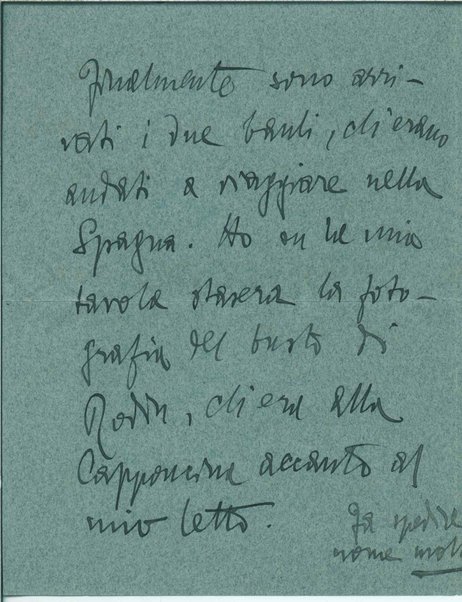 Finalmente sono arri-
vati i due bauli, ch'erano
andati a viaggiare nella
Spagna. Ho su la mia
tavola stasera la foto-
grafia del busto di
Rodin, ch'era alla
Capponcina accanto al
mio letto.
Fa spedire
nome